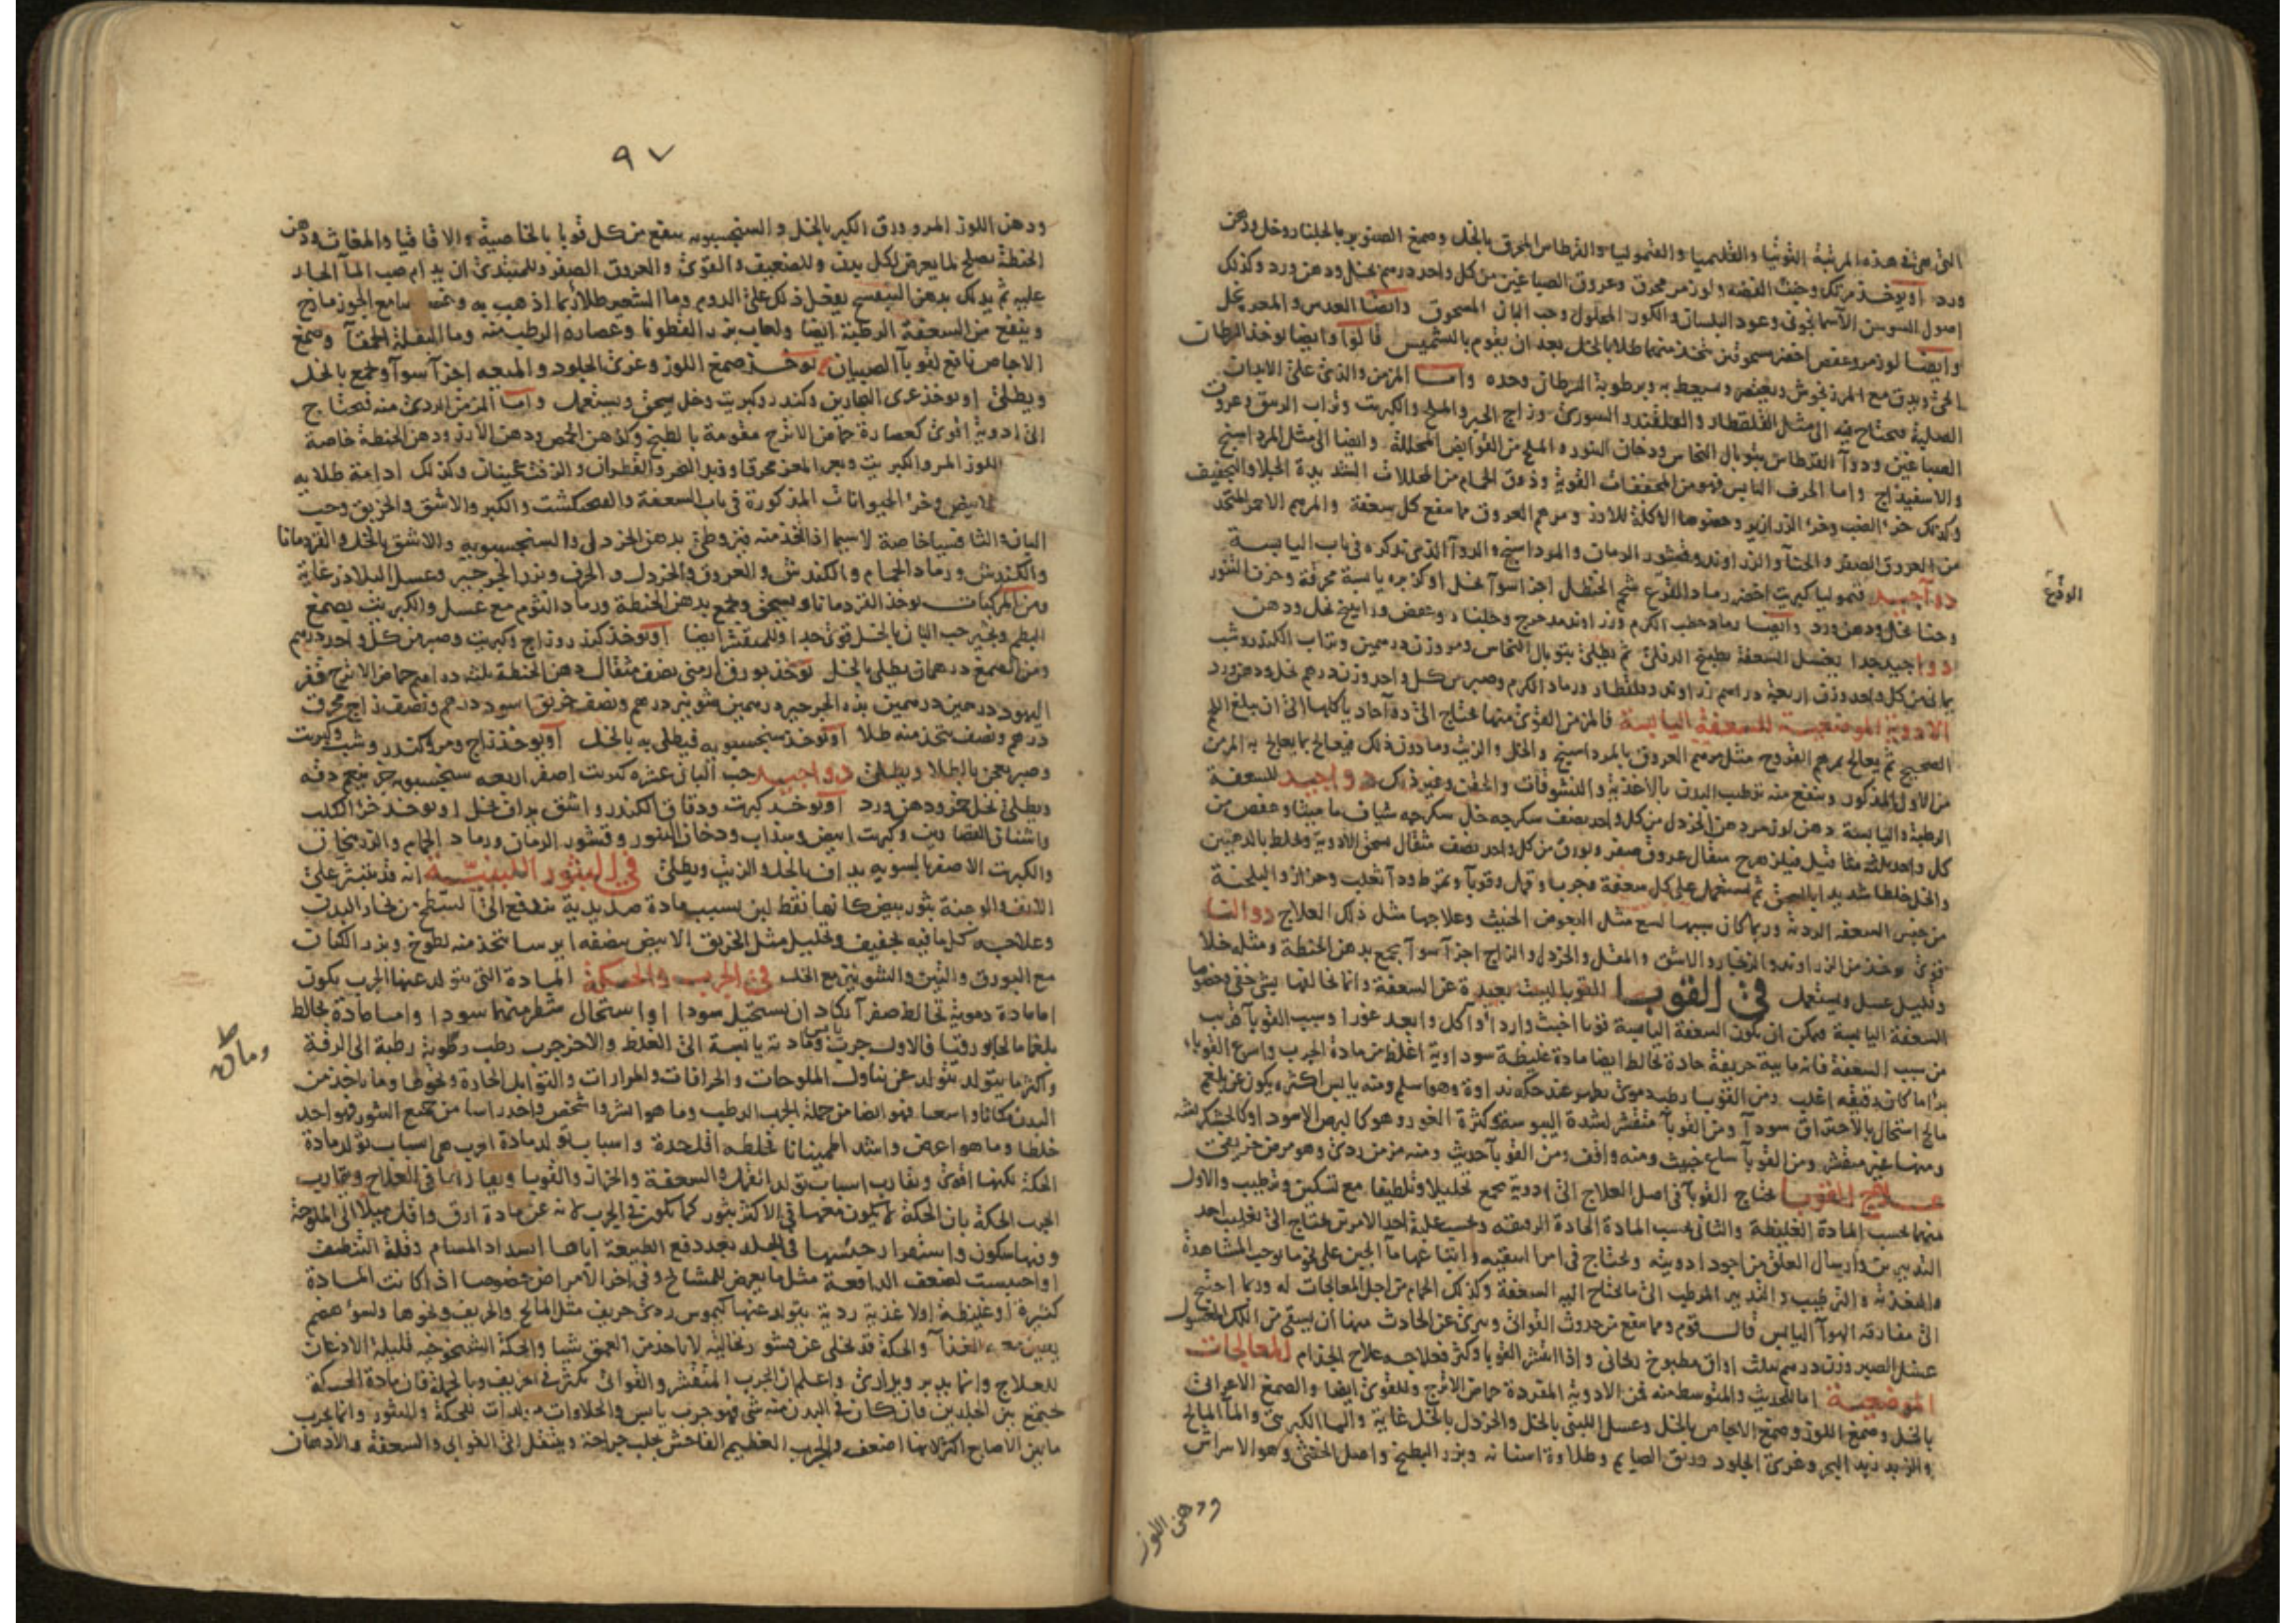 التي هي في هذه المرتبة التوتيا والقليميا والقيموليا والقرطاس المحرق بالخل وصمغ الصنوبر بالجلنار وخل ودهن
ورد او يوخذ مرتك وخبث الفضه ولوز مر محرق وعروق الصباغين من كل واحد درهم بخل ودهن ورد وكذلك
اصول السوسن الاسمانجوني وعود البلسان والكور المحلول وحب البان المسحوق وايضا العدس
وايضا لوز مر وعفص اخضر مسحوقين يتخذ منهما طلا بالخل بعد ان يقوم بالتشميس قالوا وايضا يوخذ السرطان
الحي ويدق مع المرزنجوش وبرطوبة السرطان وحده واما المزمن والذي على الابدان
الصلبة فيحتاج فيه الى مثل القلقطار والقلقند والسوري وزاج الحبر والملح والكبريت وتراب الزيبق وعروق
الصباغين ودوآ القرطاس وتوبال النحاس ودخان التنور والملح من القوابض المحللة وايضا الى مثل المرداسنج
والاسفيذاج واما الخزف اليابس فهو من المجففات القوية وذرق الحمام من المحللات الشديدة الجلا والتجفيف
وكذلك خرء الضب وخرء الزرازير وخصوصا الاكلة للارز ومرهم العروق مما ينفع كل سعفة والمرهم الاحمر المتخذ
من العروق الصفر والحنآ والزراوند وقشور الرمان والمرداسنج والدوآ الذي نذكره في باب اليابسة
دوآ جيد قيموليا كبريت اخضر رماد القرع شحم الحنظل اجزا سوآ بخل او كزبره يابسة محرقة وخزف التنور
الوقع
وحنا بخل ودهن ورد وايضا رماد حطب الكرم وزراوند مدحرج وجلنار وعفص وراتينج بخل ودهن
دوا جيد جدا يغسل السعفة بطبيخ الدفلى ثم يطلى بتوبال النحاس ومر وزن درهمين وتراب الكندر وشب
يماني من كل واحد وزن اربعة دراهم زراوند وقلقطار ورماد الكرم وصبر من كل واحد وزن درهم بخل ودهن ورد
الادوية الموضعية للسعفة اليابسة فالمزمن القوي منها يحتاج الى دوآ حاد ياكلها الى ان يبلغ اللحم
الصحيح ثم يعالج بمرهم القروح مثل مرهم العروق بالمرداسنج والخل والزيت وما دون ذلك فيعالج بما يعالج به المزمن
من الاول المذكور وينفع منه ترطيب البدن بالاغذية والنشوقات والحقن وغير ذلك دوا جيد للسعفة
الرطبة واليابسة دهن لوز مر دهن الخردل من كل واحد نصف سكرجه خل سكرجه شياف ماميثا وعفص من
كل واحد ثلثة مثاقيل فيلزهرج مثقال عروق صفر وبورق من كل واحد نصف مثقال يسحق الادوية ويخلط بالدهنين
والخل خلطا شديدا بالسحق ثم يستعمل على كل سعفة وجرب وقمل وقوبآ وتمرط ودآ ثعلب وحزاز والبلخية
من جنس السعفه الردئة وربما كان سببها لسع مثل البعوض الخبيث وعلاجها مثل ذلك العلاج دوا لنا
قوي يوخذ من الزراوند والزنجار والاشق والمقل والخردل والزاج اجزآ سوآ يجمع بدهن الحنطة ومثله خلا
وقليل عسل ويستعمل في القوبا القوبا ليست ببعيدة عن السعفة وانما تخالفها بشي خفي وخصوصا
السعفة اليابسة فيمكن ان يكون السعفة اليابسة قوبا اخبث واردأ وآكل وابعد غورا وسبب القوبآ قريب
من سبب السعفة فانه مايية حريفة حادة تخالط ايضا مادة غليظة سوداوية اغلظ من مادة الجرب واسرع القوباء
برءا ما كان رقيقه اغلب ومن القوبا رطب دموي يظهر عند حكه نداوة وهو اسلم ومنه يابس اكثره يكون عن بلغم
مالح استحال بالاحتراق سودآ ومن القوبآ متقشر لشدة اليبوسة وكثرة الغور وهو كالبرص الاسود او كالخشكريشه
ومنها غير متقشر ومن القوبآ ساع خبيث ومنه واقف ومن القوبآ حديث ومنه مزمن ردي وهو مرض خريفي
علاج القوبا يحتاج القوبآ في اصل العلاج الى ادوية تجمع تحليلا وتلطيفا مع تسكين وترطيب والاول
منهما بحسب المادة الغليظة والثاني بحسب المادة الحادة الرقيقه وبحسب غلبة احد الامرين يحتاج الى تغليب احد
التدبيرين وارسال العلق من اجود ادويته ويحتاج في امر استفراغه واتباعها مآ الجبن على نحو ما توجب المشاهدة
والتغذية والترطيب والتدبير المرطب الى ما يحتاج اليه السعفة وكذلك الحمام من اجل المعالجات له وربما احتيج
الى مفارقة الهوآ اليابس قال قوم ومما ينفع من حدوث القوابي ويبرئ عن الحادث منها ان يسقى من اللك المغسول
غسل الصبر وزن درهم بثلث اواق مطبوخ ريحاني واذا انقشر القوبا وكثر فعلاجه علاج الجذام المعالجات
الموضعية اما للحديث والمتوسط منه فمن الادوية المفردة حماض الاترج وللقوي ايضا والصمغ الاعرابي
بالخل وصمغ اللوز وصمغ الاجاص بالخل وعسل اللبني بالخل والخردل بالخل غاية والمآ الكبريتي والمآ المالح
والزبد زبد البحر وغري الجلود وريق الصايم وطلاوة اسنانه وبزر البطيخ واصل الخنثى وهو الاسراش
ودهن اللوز
٩٧
ودهن اللوز المر وورق الكبر بالخل والسنجسبويه ينفع من كل قوبا بالخاصية والاقاقيا والمغاث ودهن
الحنطة يصلح لما يعرض لكل بدن وللضعيف والقوي والعروق الصفر وللمبتدئ ان يدام صب المآ الحار
عليه ثم يدلك بدهن البنفسج يفعل ذلك على الدوم وما الشعير طلا ربما اذهب به
وينفع من السعفة الرطبة ايضا ولعاب بزر القطونا وعصارة الرطب منه وما البقلة الحمقآ وصمغ
الاجاص نافع لقوبآ الصبيان يوخذ صمغ اللوز وغري الجلود والميعه اجزآ سوآ ويجمع بالخل
ويطلى او يوخذ غري النجارين وكندر وكبريت وخل يسحق ويستعمل واما المزمن الردئ منه فيحتاج
الى ادوية اقوى كعصارة حماض الاترج مقومة بالطبخ وكدهن الحمص ودهن الارز ودهن الحنطة خاصة
اللوز المر والكبريت وبعر المعز محرقا وزبد البحر والقطران والزفت عجيبان وكذلك ادامة طلايه
الابيض وخرء الحيوانات المذكورة في باب السعفة والفنجكشت والكبر والاشق والخربق وحب
البان والثافسيا خاصة لاسيما اذا اتخذ منه قيروطي بدهن الخردل والسنجسبويه والاشق بالخل والقردمانا
والكندش ورماد الحمام والكندش والعروق والخردل والحرف وبزر الجرجير وعسل البلاذر غاية
ومن المركبات يوخذ القردمانا ويسحق ويجمع بدهن الحنطة ورماد الثوم مع عسل والكبريت بصمغ
البطم وبخير حب البان بالخل قوي جدا وللمتقشر ايضا او يوخذ كندر وزاج وكبريت وصبر من كل واحد درهم
ومن الصمغ درهمان يطلى بالخل يوخذ بورق ارمني نصف مثقال دهن الحنطة ثلثه دراهم حماض الاترج قفر
اليهود درهمين درهمين بزر الجرجير درهمين شونيز درهم ونصف خربق اسود درهم ونصف زاج محرق
درهم ونصف يتخذ منه طلا او يوخذ سنجسبويه فيطلى به بالخل او يوخذ زاج ومر وكندر وشب وكبريت
وصبر يعجن بالطلا ويطلى دوا جيد حب البان عشره كبريت اصفر اربعه سنجسبويه
ويطلى بخل خمر ودهن ورد او يوخذ كبريت ودقاق الكندر واشق يداف بخل او يوخذ خرء الكلب
واشنان القصارين وكبريت ابيض وسذاب ودخان التنور وقشور الرمان ورماد الحمام والزرنيخان
والكبريت الاصفر بالسويه يداف بالخل والزيت ويطلى في البثور اللبنية انه قد ينتثر على
الانف والوجنة بثور بيض كانها نقط لبن بسبب مادة صديدية تندفع الى السطح من بخار البدن
وعلاجه كل ما فيه تجفيف وتحليل مثل الخربق الابيض بنصفه ايرسا يتخذ منه لطوخ وبزر الكتان
مع البورق والتين والشونيز مع الخل في الجرب والحكة المادة التي يتولد عنها الجرب يكون
اما مادة دموية تخالط صفرآ يكاد ان يستحيل سودا او استحال شطر منهما سودا واما مادة يخالط
بلغما مالحا بورقيا فالاول جرب يابس ومادته يابسة الى الغلظ والاخر جرب رطب رطوبة رطبة الى الرقة
ومادته
واكثر ما يتولد يتولد عن تناول الملوحات والحرافات والمرارات والتوابل الحارة ونحوها وما ياخذ من
البدن مكانا واسعا فهو ايضا من جملة الجرب الرطب وما هو اشر واشخص واحد راسا من جميع البثور فهو احد
خلطا وما هو اعرض واشد اطمينانا فخلطه اقل حدة واسباب تولد مادة الجرب هي اسباب تولد مادة
الحكة لكنها اقوى ويقارب اسباب تولد القمل والسعفة والحزاز والقوبا ويقاربها في العلاج ويقارب
الجرب الحكة بان الحكة لا يكون معها في الاكثر بثور كما يكون في الجرب لانه عن مادة ارق واقل ميلا الى الملوحة
وفيها سكون واستقرار حبسها في الجلد بعد دفع الطبيعة اياها انسداد المسام وقلة التنظيف
او احتبست لضعف الدافعة مثل ما يعرض للمشايخ وفي اخر الامراض خصوصا اذا كانت المادة
كثيرة او غليظة اولاغذية ردية يتولد عنها كيموس ردي حريف مثل المالح والحريف ونحوها ولسوء هضم
يعين معه الغذآ والحكة قد تخلى عن قشور نخالية لا ياخذ من العمق شيا والحكة الشيخوخيه قليلة الاذعان
للعلاج وانما يدبر ويدارى واعلم ان الجرب المتقشر والقوابي تكثر في الخريف وبالجملة فان مادة الحكة
تجتمع بين الجلدين فان كان في البدن منه شي فهو جرب يابس والحلاوات مولدات للحكة والبثور وانما يجرب
ما بين الاصابع اكثر لانها اضعف والجرب العظيم الفاحش يجلب جراحة وينتقل الى القوابي والسعفة والادهان